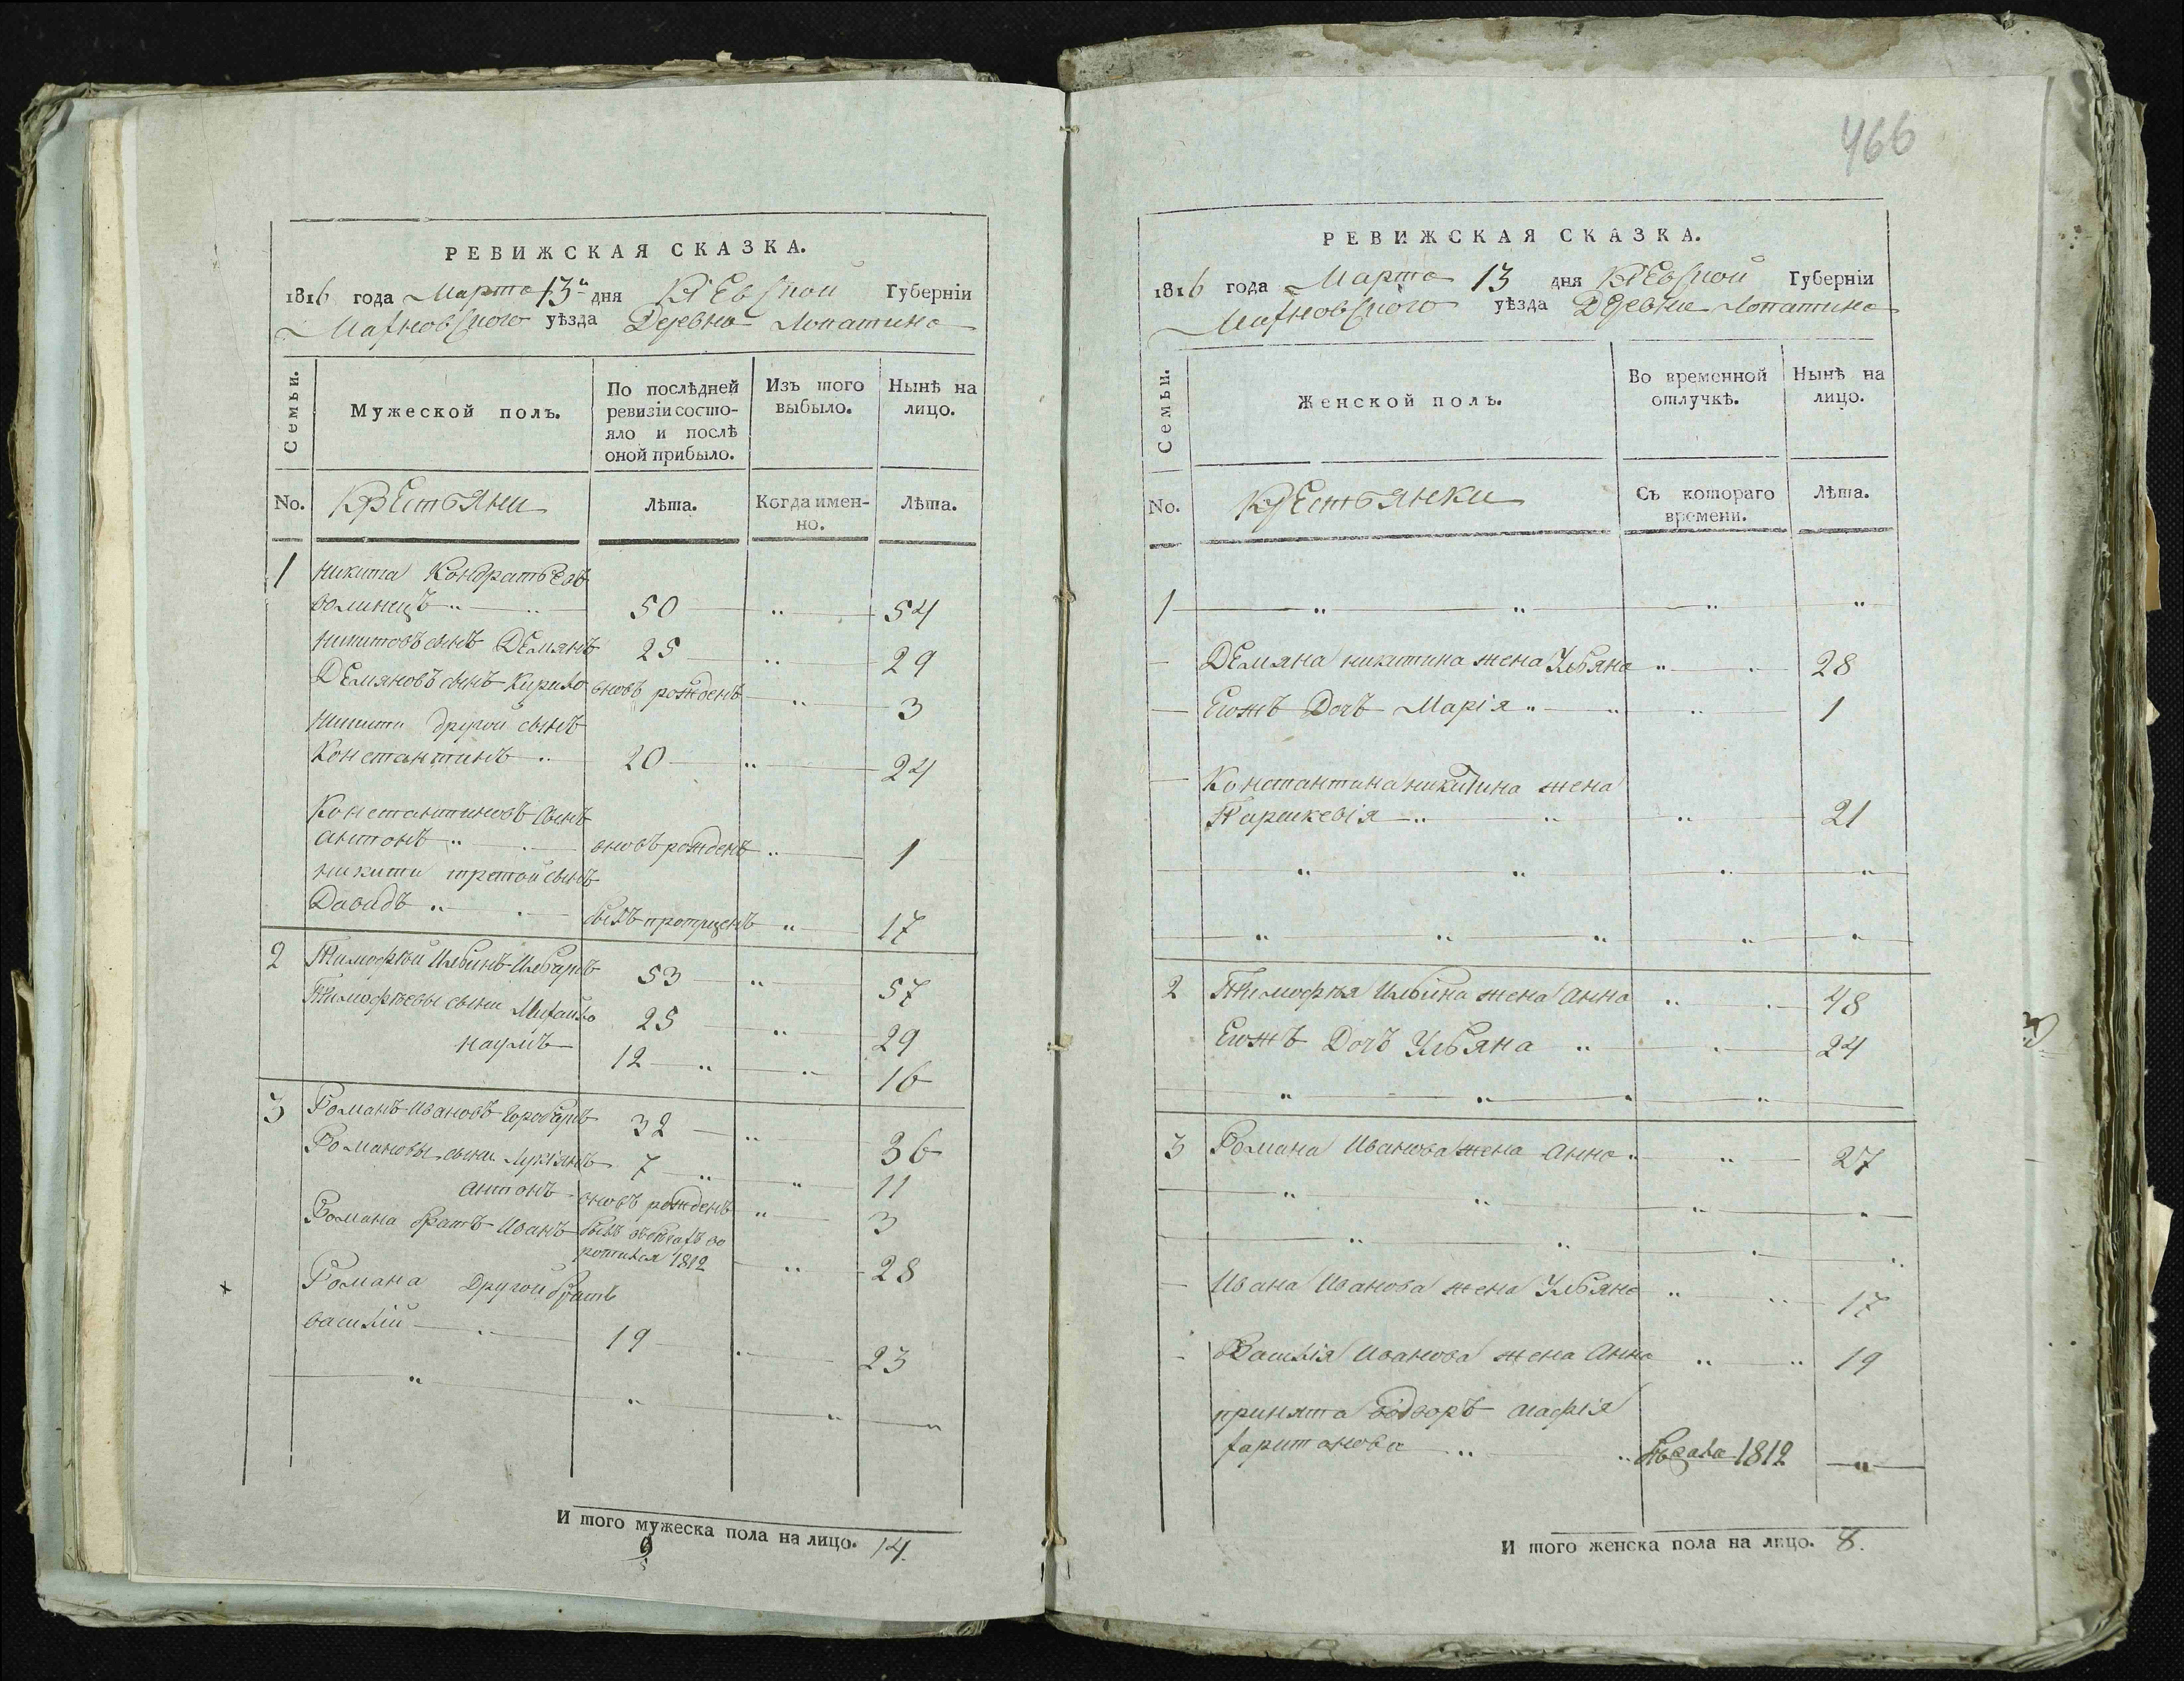 466
РЕВИЖСКАЯ СКАЗКА.
1816 года Марта 13 дня Кіевской Губерніи
Махновского уѣзда Деревни Лопатина
Семьи. Мужеской полъ. По послѣдней ревизіи состояло и послѣ оной прибыло. Изъ того выбыло. Нынѣ на лицо.
No. Крестьяни Лѣта. Когда именно. Лѣта.
1 никита Кондратьевъ
волинецъ 50 54
никитовъ сынъ Демянъ 25 29
Демяновъ сынъ Кирило вновъ рожденъ 3
никити другой сынъ
Константинъ 20 24
Константиновъ сынъ
антонъ вновъ рожденъ 1
никити третой сынъ
Давидъ былъ пропущенъ 17
2 Тимофѣй Ильинъ 53 57
Тимофѣевы сыни Михайло 25 29
наумъ 12 16
3 Романъ Ивановъ 32 36
Романовы сыни Лукіянъ 7 11
антонъ вновъ рожденъ 3
Романа братъ Иванъ былъ въ бегахъ во
ротился 1812 28
Романа Другой братъ
василій 19 23
И того мужеска пола на лицо. 14.
РЕВИЖСКАЯ СКАЗКА.
1816 года Марта 13 дня Кіевской Губерніи
Махновского уѣзда Деревни Лопатина
Семьи. Женской полъ. Во временной отлучкѣ. Нынѣ на лицо.
No. Крестьянки Съ котораго времени. Лѣта.
1
Демяна никитина жена Ульяна 28
Егожъ Дочъ Марія 1
Константина никитина жена
Параскевія 21
2 Тимофѣя Ильина жена анна 48
Егожъ Дочъ Ульяна 24
3 Романа Иванова жена анна 27
Ивана Иванова жена Ульяна 17
Василія Иванова жена Анна 19
принята водворъ агафія
харитонова бѣжала 1812
И того женска пола на лицо. 8.